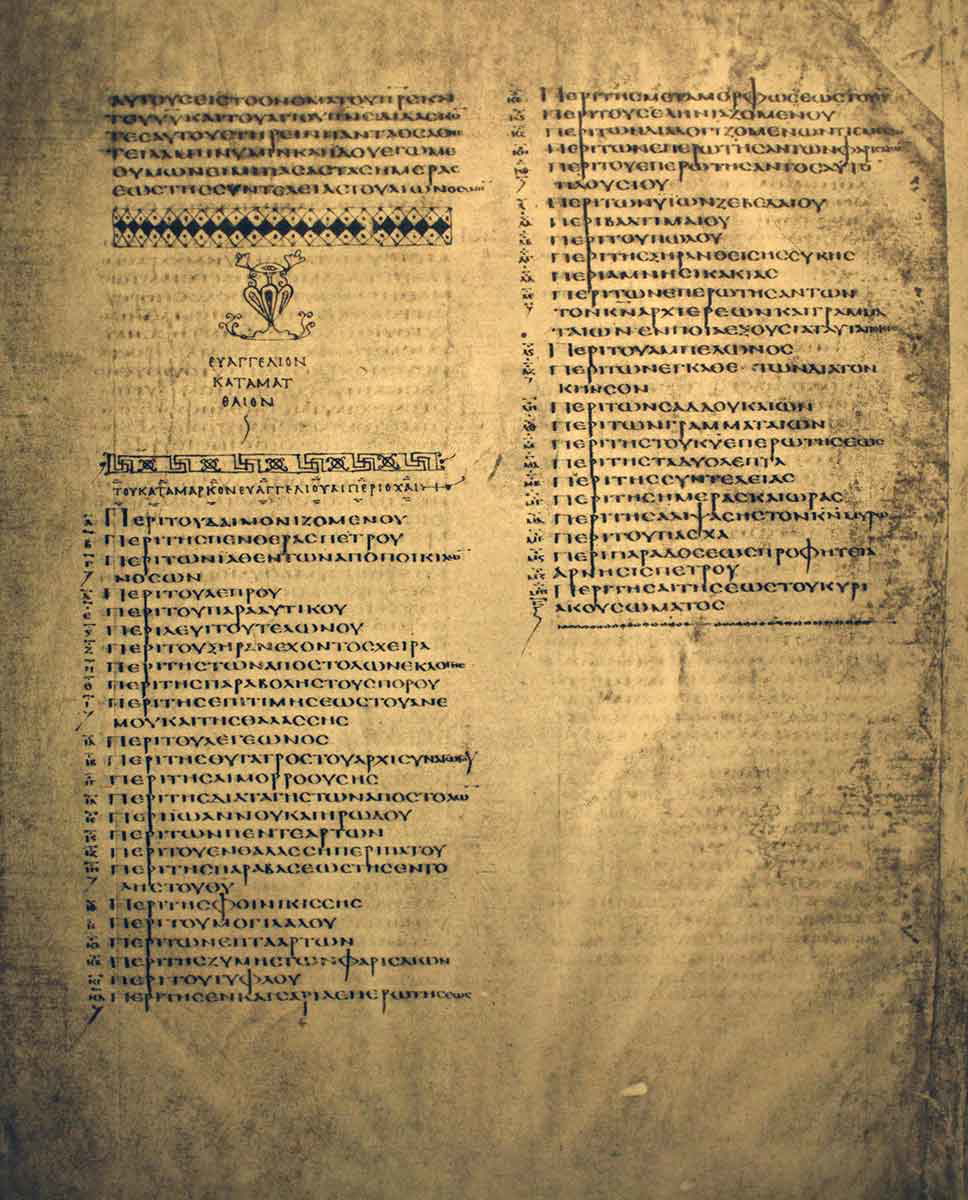 ΑΥΤΟΥΣΕΙΣΤΟΟΝΟΜΑΤΟΥΠΡΣΚΑΙ
ΤΟΥΥΥΚΑΙΤΟΥΑΓΙΟΥΠΝΣΔΙΔΑΣΚΟ
ΤΕΣΑΥΤΟΥΣΤΗΡΕΙΝΠΑΝΤΑΟΣΑΕΝΕ
ΤΕΙΛΑΜΗΝΥΜΙΝΚΑΙΙΔΟΥΕΓΩΜΕ
ΘΥΜΩΝΕΙΜΙΠΑΣΑΣΤΑΣΗΜΕΡΑΣ
ΕΩΣΤΗΣΣΥΝΤΕΛΕΙΑΣΤΟΥΑΙΩΝΟΣΑΜΗΝ
ΕΥΑΓΓΕΛΙΟΝ
ΚΑΤΑΜΑΤ
ΘΑΙΟΝ
ΤΟΥΚΑΤΑΜΑΡΚΟΝΕΥΑΓΓΕΛΙΟΥΑΙΠΕΡΙΟΧΑΙ
Α ΠΕΡΙΤΟΥΔΑΙΜΟΝΙΖΟΜΕΝΟΥ
Β ΠΕΡΙΤΗΣΠΕΝΘΕΡΑΣΠΕΤΡΟΥ
Γ ΠΕΡΙΤΩΝΙΑΘΕΝΤΩΝΑΠΟΠΟΙΚΙΛΩ
ΝΟΣΩΝ
Δ ΠΕΡΙΤΟΥΛΕΠΡΟΥ
Ε ΠΕΡΙΤΟΥΠΑΡΑΛΥΤΙΚΟΥ
Ϛ ΠΕΡΙΛΕΥΙΤΟΥΤΕΛΩΝΟΥ
Ζ ΠΕΡΙΤΟΥΞΗΡΑΝΕΧΟΝΤΟΣΧΕΙΡΑ
Η ΠΕΡΙΤΗΣΤΩΝΑΠΟΣΤΟΛΩΝΕΚΛΟΓΗΣ
Θ ΠΕΡΙΤΗΣΠΑΡΑΒΟΛΗΣΤΟΥΣΠΟΡΟΥ
Ι ΠΕΡΙΤΗΣΕΠΙΤΙΜΗΣΕΩΣΤΟΥΑΝΕ
ΜΟΥΚΑΙΤΗΣΘΑΛΑΣΣΗΣ
ΙΑ ΠΕΡΙΤΟΥΛΕΓΕΩΝΟΣ
ΙΒ ΠΕΡΙΤΗΣΘΥΓΑΤΡΟΣΤΟΥΑΡΧΙΣΥΝΑΓΩΓΟΥ
ΙΓ ΠΕΡΙΤΗΣΑΙΜΟΡΡΟΟΥΣΗΣ
ΙΔ ΠΕΡΙΤΗΣΔΙΑΤΑΓΗΣΤΩΝΑΠΟΣΤΟΛΩ
ΙΕ ΠΕΡΙΙΩΑΝΝΟΥΚΑΙΗΡΩΔΟΥ
ΙϚ ΠΕΡΙΤΩΝΠΕΝΤΕΑΡΤΩΝ
ΙΖ ΠΕΡΙΤΟΥΕΝΘΑΛΑΣΣΗΠΕΡΙΠΑΤΟΥ
ΙΗ ΠΕΡΙΤΗΣΠΑΡΑΒΑΣΕΩΣΤΗΣΕΝΤΟ
ΛΗΣΤΟΥΘΥ
ΙΘ ΠΕΡΙΤΗΣΦΟΙΝΙΚΙΣΣΗΣ
Κ ΠΕΡΙΤΟΥΜΟΓΙΛΑΛΟΥ
ΚΑ ΠΕΡΙΤΩΝΕΠΤΑΑΡΤΩΝ
ΚΒ ΠΕΡΙΤΗΣΖΥΜΗΣΤΩΝΦΑΡΙΣΑΙΩΝ
ΚΓ ΠΕΡΙΤΟΥΤΥΦΛΟΥ
ΚΔ ΠΕΡΙΤΗΣΕΝΚΑΙΣΑΡΙΑΕΠΕΡΩΤΗΣΕΩΣ
ΚΕ ΠΕΡΙΤΗΣΜΕΤΑΜΟΡΦΩΣΕΩΣΤΟΥΙΥ
ΚϚ ΠΕΡΙΤΟΥΣΕΛΗΝΙΑΖΟΜΕΝΟΥ
ΚΖ ΠΕΡΙΤΩΝΔΙΑΛΟΓΙΖΟΜΕΝΩΝΤΙΣΜΕΙΖΩΝ
ΚΗ ΠΕΡΙΤΩΝΕΠΕΡΩΤΗΣΑΝΤΩΝΦΑΡΙΣΑΙΩΝ
ΚΘ ΠΕΡΙΤΟΥΕΠΕΡΩΤΗΣΑΝΤΟΣΑΥΤΟ
ΠΛΟΥΣΙΟΥ
Λ ΠΕΡΙΤΩΝΥΙΩΝΖΕΒΕΔΑΙΟΥ
ΛΑ ΠΕΡΙΒΑΡΤΙΜΑΙΟΥ
ΛΒ ΠΕΡΙΤΟΥΠΩΛΟΥ
ΛΓ ΠΕΡΙΤΗΣΞΗΡΑΝΘΕΙΣΗΣΣΥΚΗΣ
ΛΔ ΠΕΡΙΑΜΝΗΣΙΚΑΚΙΑΣ
ΛΕ ΠΕΡΙΤΩΝΕΠΕΡΩΤΗΣΑΝΤΩΝ
ΤΟΝΚΝΑΡΧΙΕΡΕΩΝΚΑΙΓΡΑΜΜΑ
ΤΑΙΩΝΕΝΠΟΙΑΕΞΟΥΣΙΑΤΑΥΤΑΠΟΙΕΙΣ
ΛϚ ΠΕΡΙΤΟΥΑΜΠΕΛΩΝΟΣ
ΛΖ ΠΕΡΙΤΩΝΕΓΚΑΘΕΤΩΝΔΙΑΤΟΝ
ΚΗΝΣΟΝ
ΛΗ ΠΕΡΙΤΩΝΣΑΔΔΟΥΚΑΙΩΝ
ΛΘ ΠΕΡΙΤΩΝΓΡΑΜΜΑΤΑΙΩΝ
Μ ΠΕΡΙΤΗΣΤΟΥΚΥΕΠΕΡΩΤΗΣΕΩΣ
ΜΑ ΠΕΡΙΤΗΣΤΑΔΥΟΛΕΠΤΑ
ΜΒ ΠΕΡΙΤΗΣΣΥΝΤΕΛΕΙΑΣ
ΜΓ ΠΕΡΙΤΗΣΗΜΕΡΑΣΚΑΙΩΡΑΣ
ΜΔ ΠΕΡΙΤΗΣΑΛΙΨΑΣΗΣΤΟΝΚΝΜΥΡΩ
ΜΕ ΠΕΡΙΤΟΥΠΑΣΧΑ
ΜϚ ΠΕΡΙΠΑΡΑΔΟΣΕΩΣΠΡΟΦΗΤΕΙΑ
ΜΖ ΑΡΝΗΣΙΣΠΕΤΡΟΥ
ΜΗ ΠΕΡΙΤΗΣΑΙΤΗΣΕΩΣΤΟΥΚΥΡΙ
ΑΚΟΥΣΩΜΑΤΟΣ